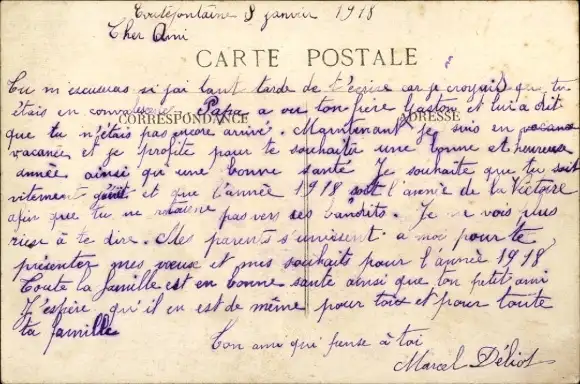 Toutefontaine 8 janvier 1918
Cher Ami
CARTE POSTALE
CORRESPONDANCE
ADRESSE
Tu m'excuseras si j'ai tant tardé de t'écrire car je croyais que tu
étais en convalescence. Papa a vu ton frère Gaston et lui a dit
que tu n'étais pas encore arrivé. Maintenant je suis en vacance
vacance et je profite pour te souhaiter une bonne et heureuse
année ainsi qu'une bonne santé. Je souhaite que tu soit
vitement guérit et que l'année 1918 soit l'année de la Victoire
afin que tu ne retourne pas vers ses bandits. Je ne vois plus
rien à te dire. Mes parents s'unissent a moi pour te
présenter mes vœux et mes souhaits pour l'année 1918
Toute la famille est en bonne santé ainsi que ton petit ami
J'espère qu'il en est de même pour toi et pour toute
ta famille
Ton ami qui pense à toi
Marcel Déliot